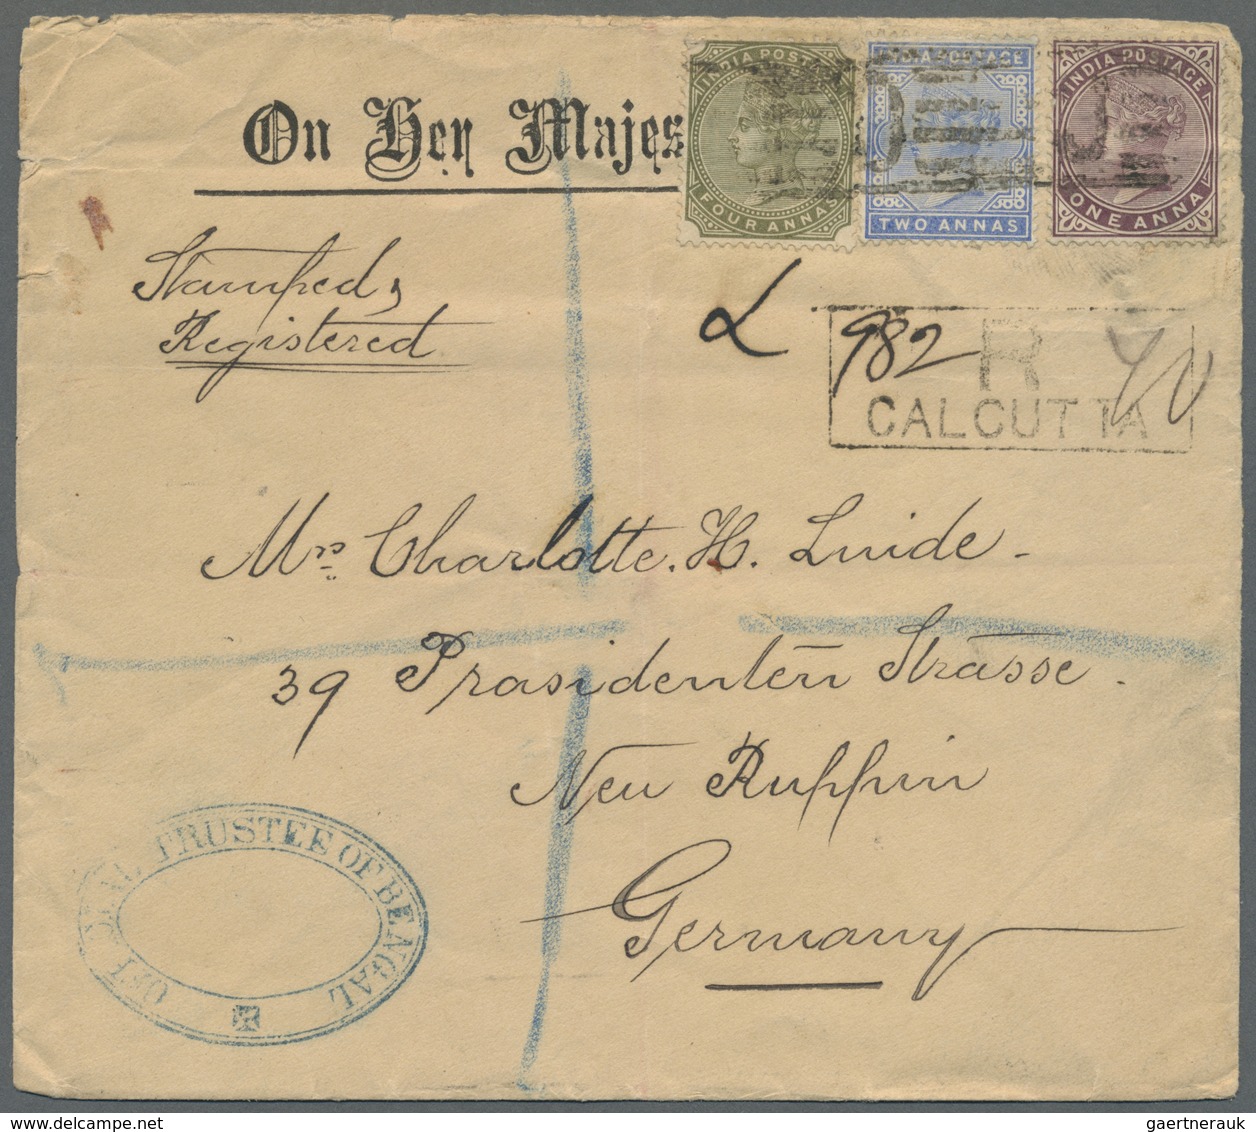 On Her Majes
INDIA POSTAGE
FOUR ANNAS
INDIA POSTAGE
TWO ANNAS
INDIA POSTAGE
ONE ANNA
Stamped,
Registered
L 982
R
CALCUTTA
Mrs. Charlotte. H. Luide.
39 Prasidenten Strasse.
Neu Ruppin
Germany
OFFICIAL TRUSTEE OF BENGAL
delcampe.net
gaertnerauk